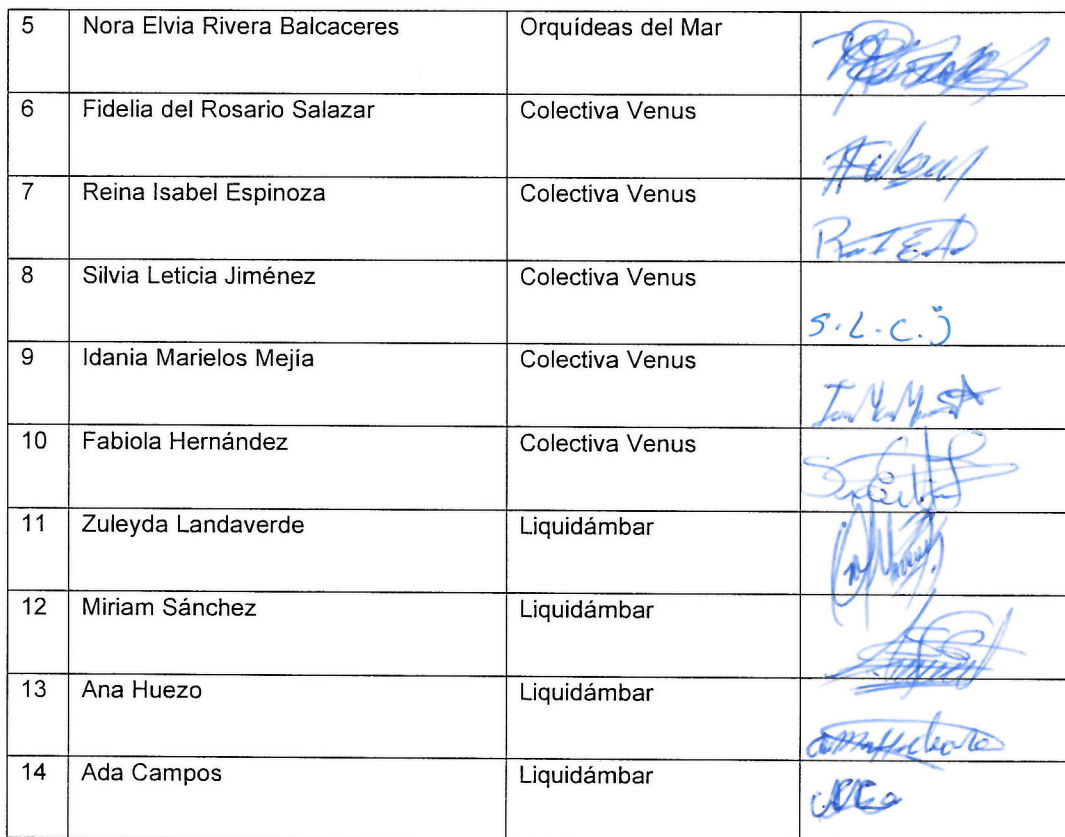 5 Nora Elvia Rivera Balcaceres Orquídeas del Mar
6 Fidelia del Rosario Salazar Colectiva Venus
7 Reina Isabel Espinoza Colectiva Venus
8 Silvia Leticia Jiménez Colectiva Venus S.L.C.J
9 Idania Marielos Mejía Colectiva Venus
10 Fabiola Hernández Colectiva Venus
11 Zuleyda Landaverde Liquidámbar
12 Miriam Sánchez Liquidámbar
13 Ana Huezo Liquidámbar
14 Ada Campos Liquidámbar